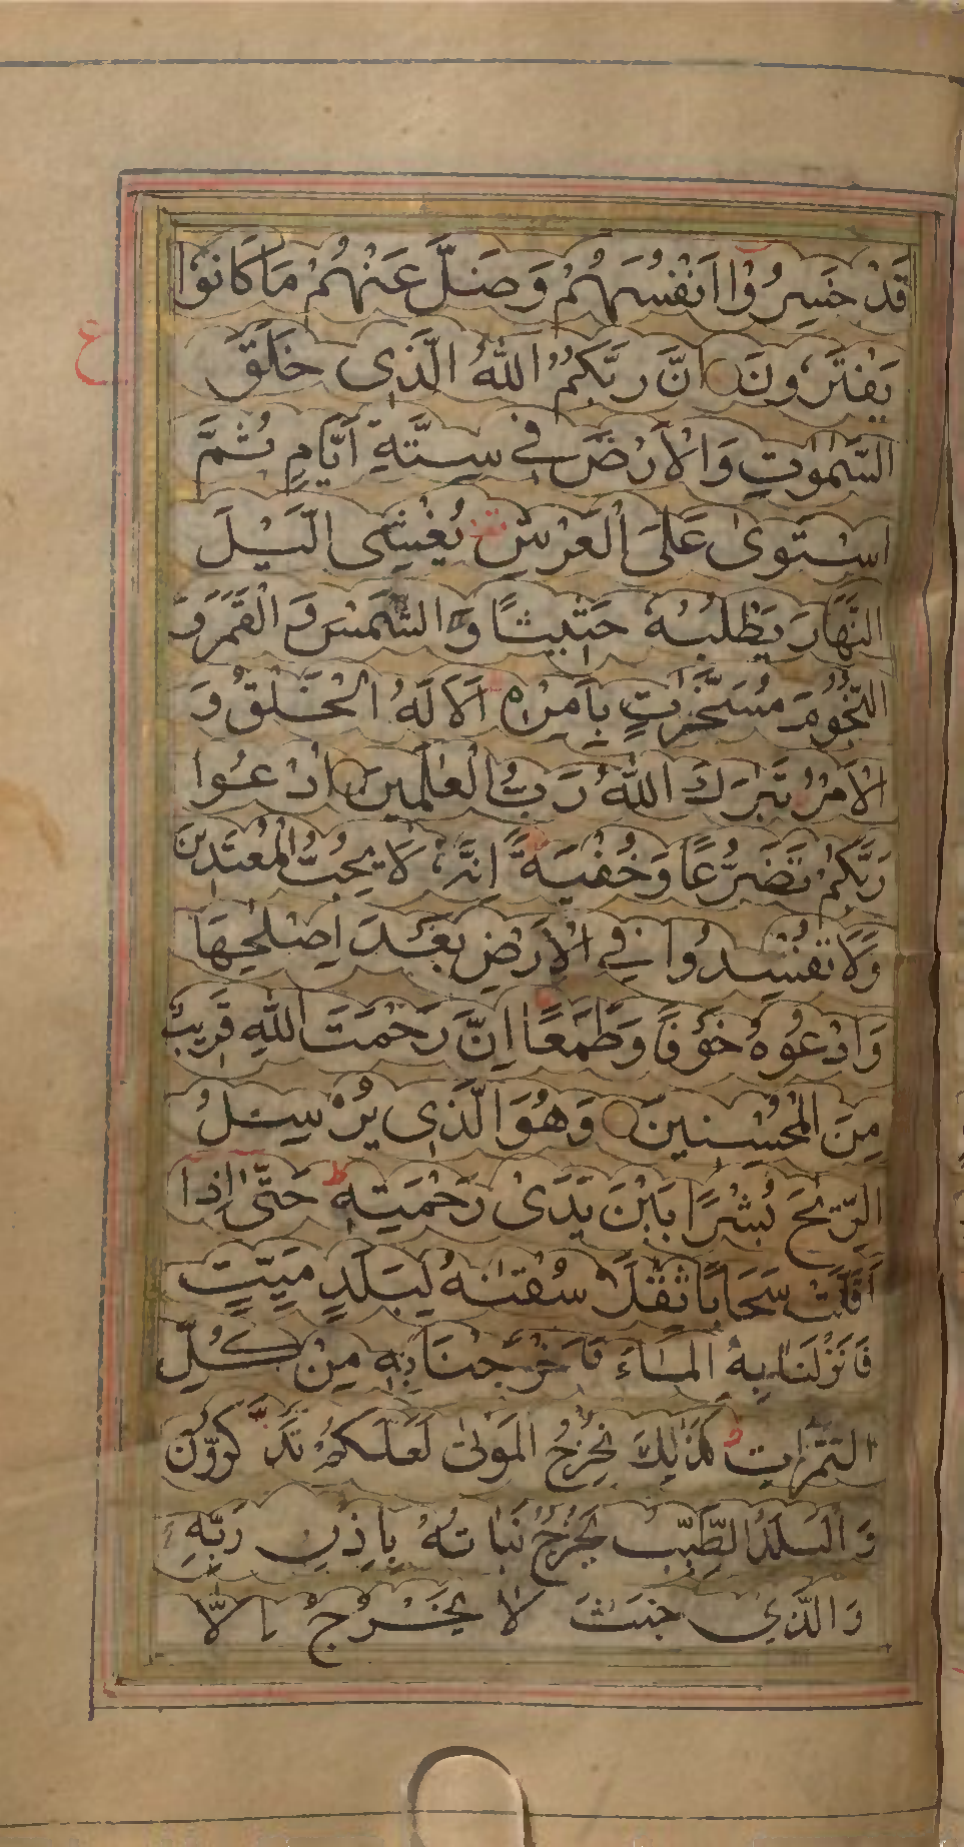 قَدْ خَسِرُوْا اَنْفُسَهُمْ وَضَلَّ عَنْهُمْ مَا كَانُوْا
ع
يَفْتَرُونَ اِنَّ رَبَّكُمُ اللّٰهُ الَّذِى خَلَقَ
السَّمٰوٰتِ وَالْاَرْضَ فِي سِتَّةِ اَيَّامٍ ثُمَّ
اسْتَوىٰ عَلَى الْعَرْشِ يُغْشِى الَّيْلَ
النَّهَارَ يَطْلُبُهُ حَثِيثًا وَالشَّمْسَ وَالْقَمَرَ وَ
النُّجُومَ مُسَخَّرٰتٍ بِاَمْرِهِ اَلَا لَهُ الْخَلْقُ وَ
الْاَمْرُ تَبٰرَكَ اللّٰهُ رَبُّ الْعٰلَمِينَ اُدْعُوا
رَبَّكُمْ تَضَرُّعًا وَخُفْيَةً اِنَّهُ لَا يُحِبُّ الْمُعْتَدِينَ
وَلَا تُفْسِدُوا فِي الْاَرْضِ بَعْدَ اِصْلٰحِهَا
وَادْعُوهُ خَوْفًا وَطَمَعًا اِنَّ رَحْمَتَ اللّٰهِ قَرِيبٌ
مِنَ الْمُحْسِنِينَ وَهُوَ الَّذِى يُرْسِلُ
الرِّيٰحَ بُشْرًا بَيْنَ يَدَىْ رَحْمَتِهِ حَتّٰى اِذَا
اَقَلَّتْ سَحَابًا ثِقَلًا سُقْنٰهُ لِبَلَدٍ مَيِّتٍ
فَاَنْزَلْنَا بِهِ الْمَاءَ فَاَخْرَجْنَا بِهِ مِنْ كُلِّ
الثَّمَرٰتِ كَذٰلِكَ نُخْرِجُ الْمَوْتٰى لَعَلَّكُمْ تَذَكَّرُونَ
وَالْبَلَدُ الطَّيِّبُ يَخْرُجُ نَبَاتُهُ بِاِذْنِ رَبِّهِ
وَالَّذِي خَبُثَ لَا يَخْرُجُ اِلَّا